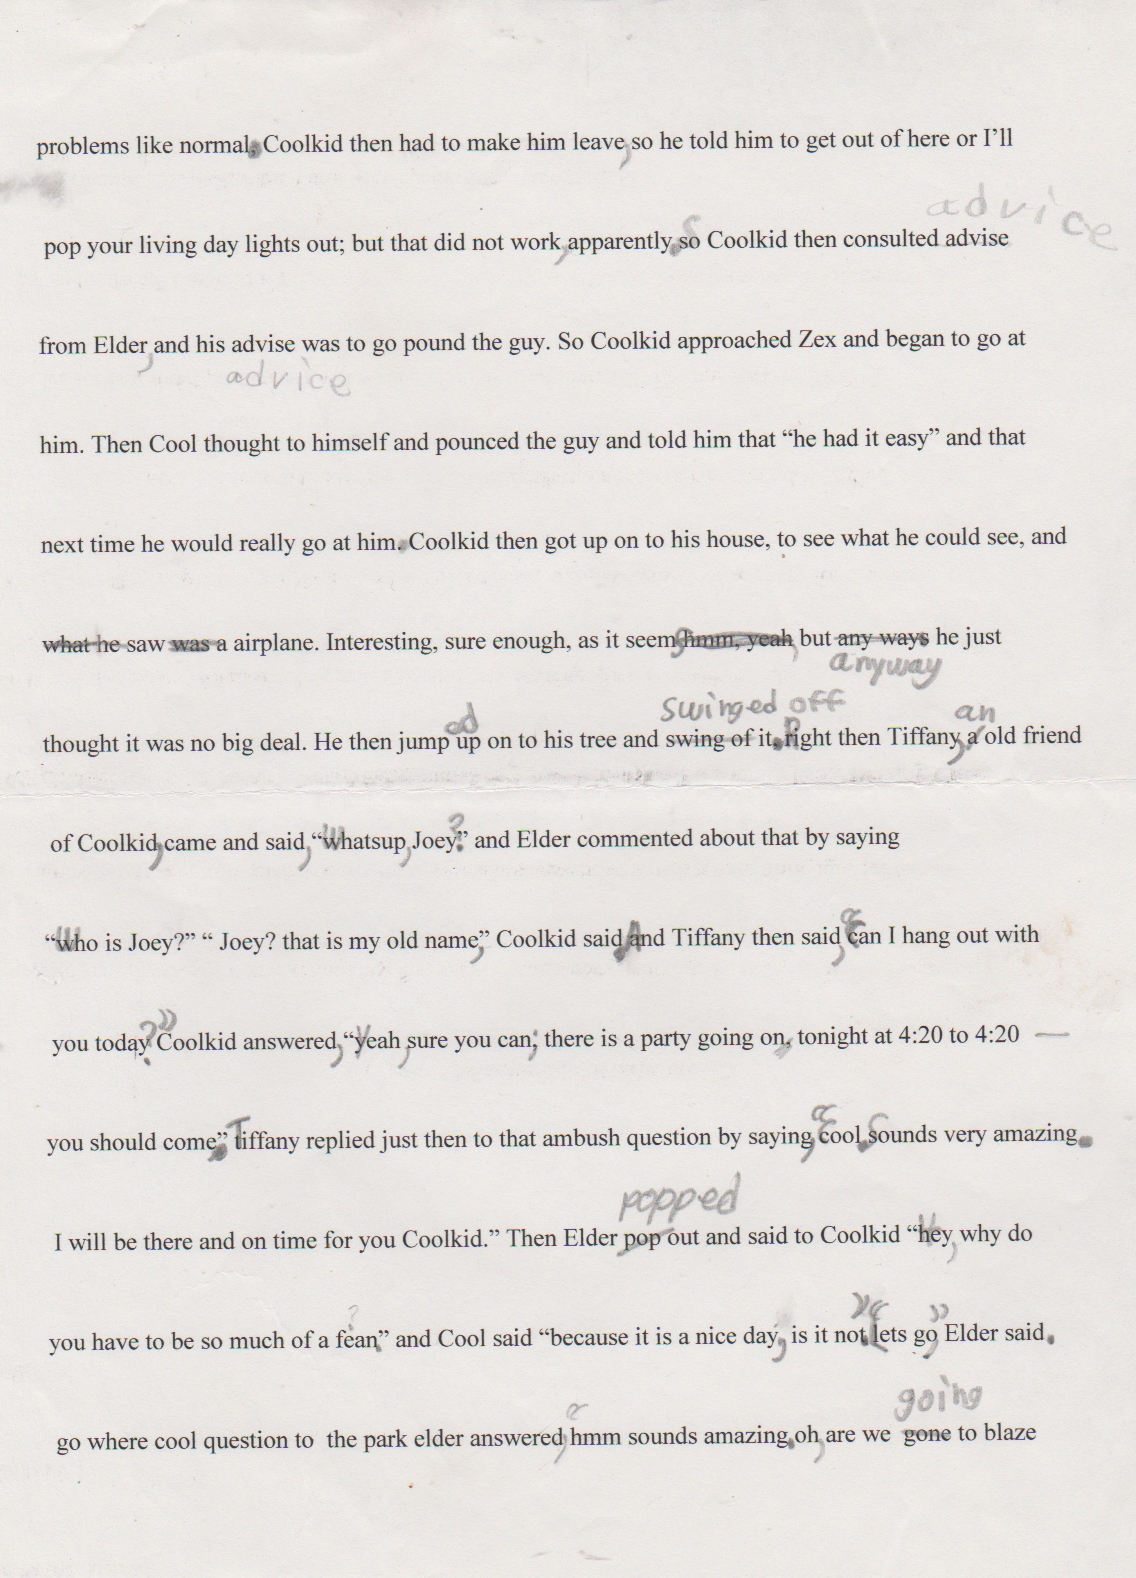 problems like normal. Coolkid then had to make him leave, so he told him to get out of here or I’ll
advice
pop your living day lights out; but that did not work, apparently. so Coolkid then consulted advise
from Elder, and his advise was to go pound the guy. So Coolkid approached Zex and began to go at
advice
him. Then Cool thought to himself and pounced the guy and told him that “he had it easy” and that
next time he would really go at him. Coolkid then got up on to his house, to see what he could see, and
what he saw was a airplane. Interesting, sure enough, as it seem, hmm, yeah, but any ways he just
anyway
swinged off
an
ed
thought it was no big deal. He then jump up on to his tree and swing of it. Right then Tiffany, a old friend
of Coolkid, came and said, “Whatsup, Joey?” and Elder commented about that by saying
“Who is Joey?” “ Joey? that is my old name,” Coolkid said. And Tiffany then said, “can I hang out with
you today?” Coolkid answered, “Yeah, sure you can; there is a party going on, tonight at 4:20 to 4:20 —
you should come.” Tiffany replied just then to that ambush question by saying, “cool. Sounds very amazing.
popped
I will be there and on time for you Coolkid.” Then Elder pop out and said to Coolkid “Hey, why do
you have to be so much of a fean?” and Cool said “because it is a nice day, is it not.” “Lets go,” Elder said.
going
go where cool question to the park elder answered, “hmm sounds amazing. oh, are we gone to blaze